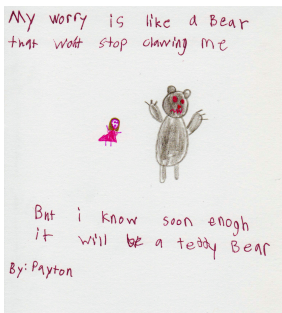 My worry is like a Bear
that wont stop clawing me
But i know soon enogh
it will be a teddy Bear
By: Payton